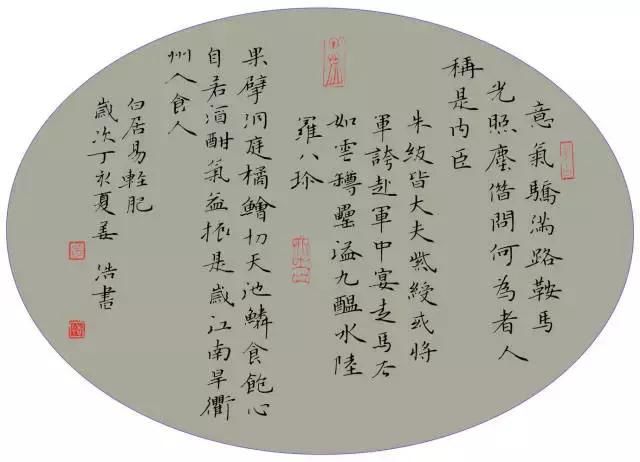 意氣驕滿路鞍馬
光照塵借問何為者人
稱是内臣
朱紱皆大夫紫綬或將
軍誇赴軍中宴走馬去
如雲罇罍溢九醞水陸
羅八珍
果擘洞庭橘鱠切天池鱗食飽心
自若酒酣氣益振是歲江南旱衢
州人食人
白居易輕肥
歲次丁亥夏姜浩書